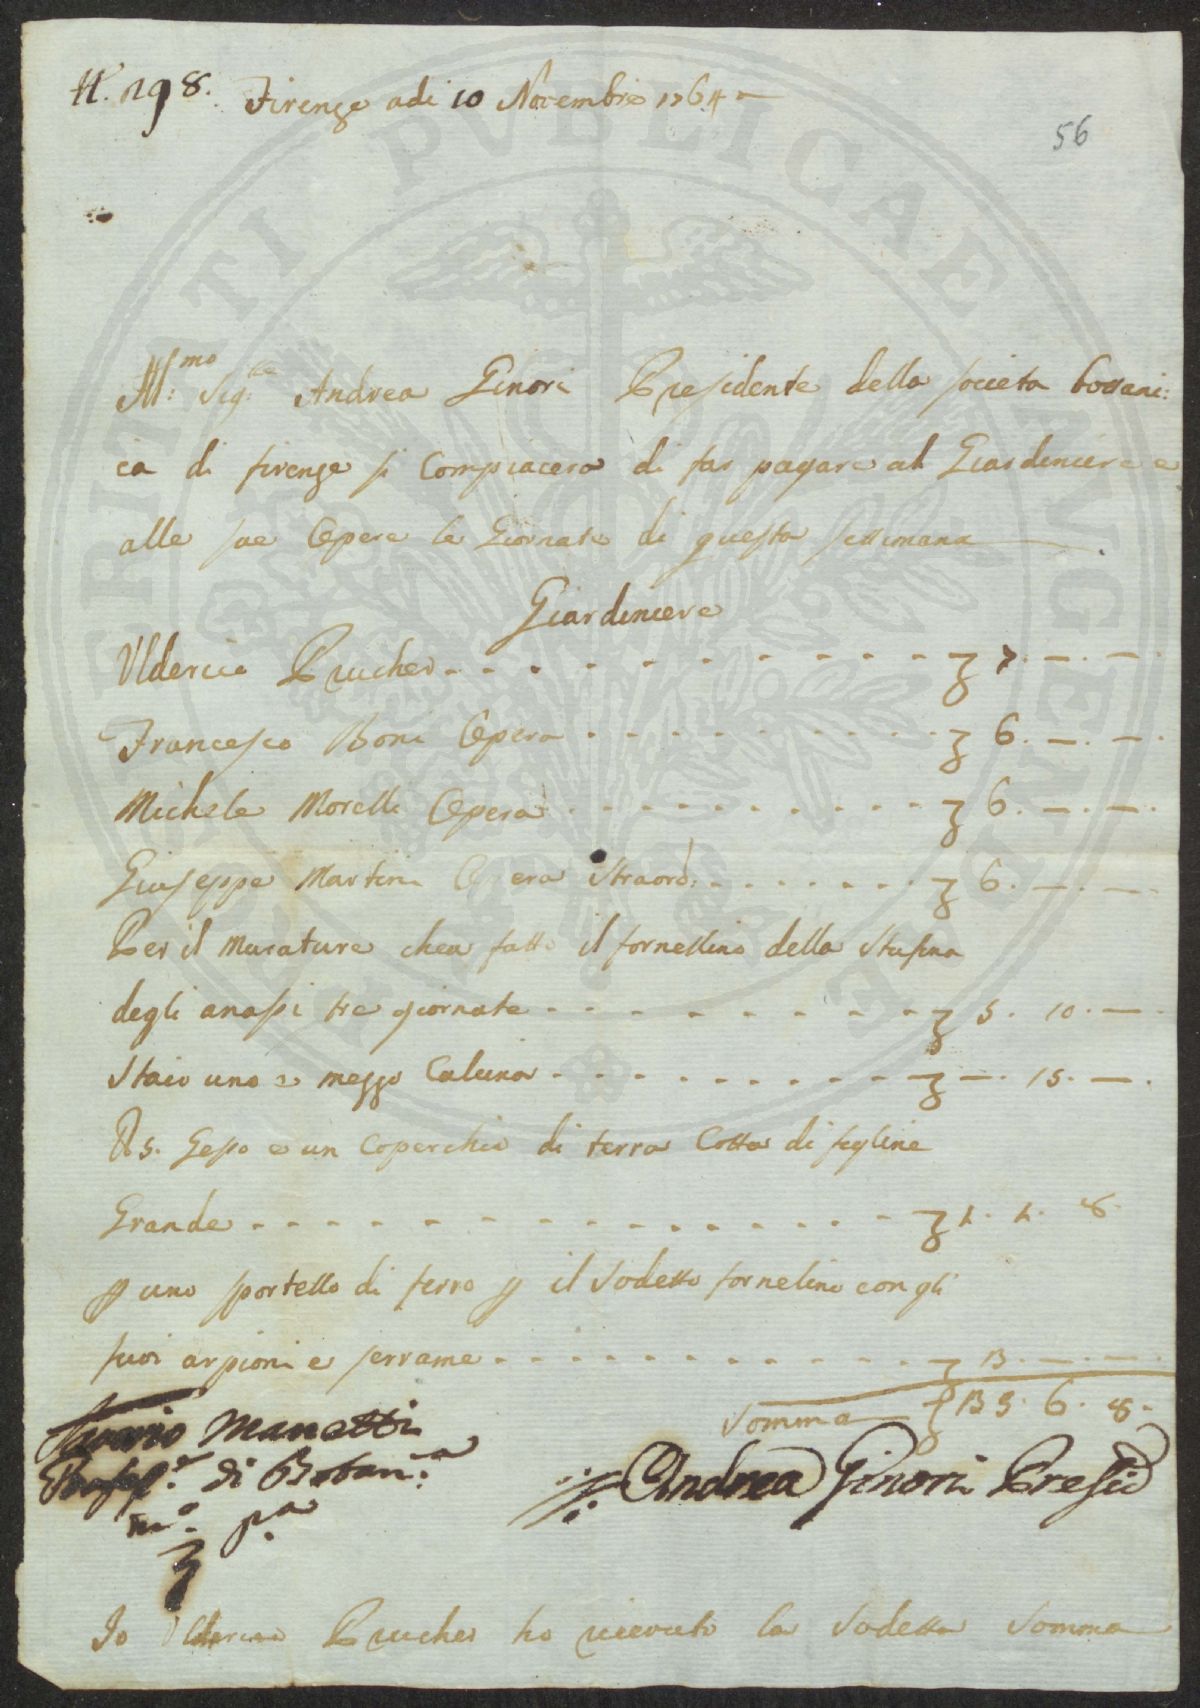 N. 198. Firenze adi 10 Novembrie 1764
56
Ill:mo Sig:re Andrea Ginori Presidente della società bottani:
ca di firenze si Compiacera di far pagare al Giardiniere e
alle sue Opere le Giornate di questa settimana
Giardiniere
Ulderico Prucher 7. — . —
Francesco Boni Opera 6. — . — .
Michele Morelli Opera 6. — . — .
Giuseppe Martini Opera Straord: 6. — . —
Per il muratore chea fatto il fornellino della stufina
degli anassi tre giornate 5. 10. — .
Staio uno e mezzo Calcina — . 15. — .
5. Gesso e un Coperchio di terra Cotta di figline
Grande 1. 1. 8.
p uno sportello di ferro p il sodetto fornelino con gli
suoi arpioni e serrame 13 — . — .
Somma 6. 8.
Saverio Manetti
Profes:r di Botan:ca
m:o p:a
Andrea Ginori Presid
Io Ulderico Prucher ho ricevuto la sodetta somma
PVBLICAE